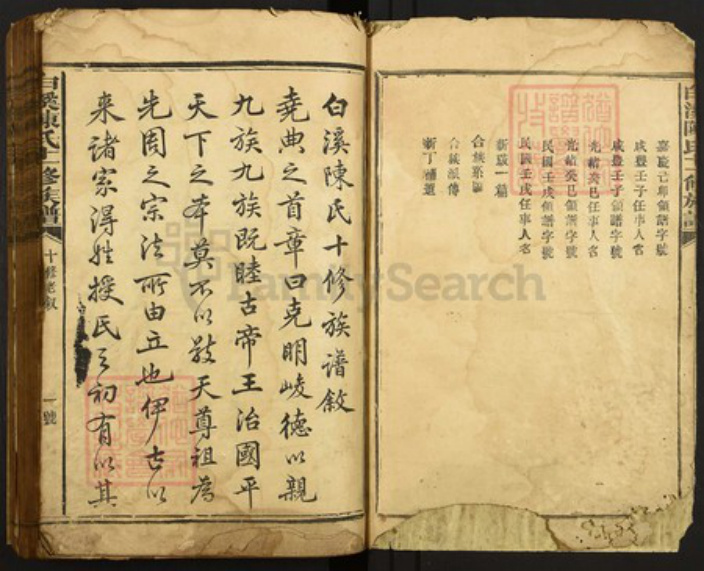 嘉慶己卯領譜字號
咸豐壬子任事人名
咸豐壬子領譜字號
光緒癸巳任事人名
光緒癸巳領譜字號
民國壬戌領譜字號
民國壬戌任事人名
新訂一藕
合族系圖
合族派傳
新丁補遺
白溪陳氏十修族譜敘
堯典之首章曰克明峻德以親
九族九族既睦古帝王治國平
天下之本莫不以敬天尊祖為
先周之宗法所由立也伊古以
來諸家得姓授氏之初有以其
白溪陳氏十修族譜
十修老敘
一號
FamilySearch